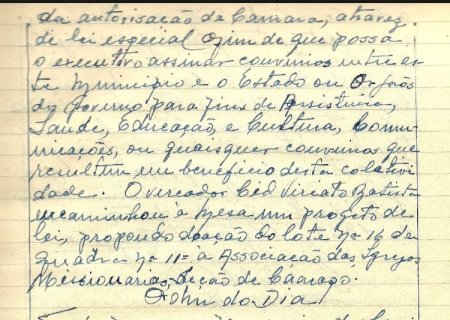 da autorisação da Camara, atravez
de lei especial afim de que possa
o executivo assinar convinios entre es-
te Municipio e o Estado ou Orgãos
do Governo, para fins de Assistencia,
Saude, Educação, e Cultura, Comu-
nicações, ou quaisquer convinios que
resultem em beneficio desta coletivi
dade. O vereador Ced Viriato Batista
encaminhou à Mesa um projeto de
lei, propondo doação do lote nº 16 da
quadra nº 11 = à Associação das Igrejas
Missionarias, Seção de
Ordem do Dia